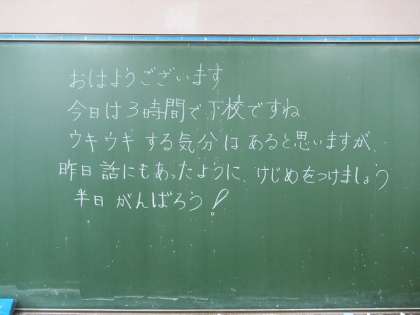 おはようございます
今日は3時間で下校ですね
ウキウキする気分はあると思いますが、
昨日話にもあったように、けじめをつけましょう
半日がんばろう!